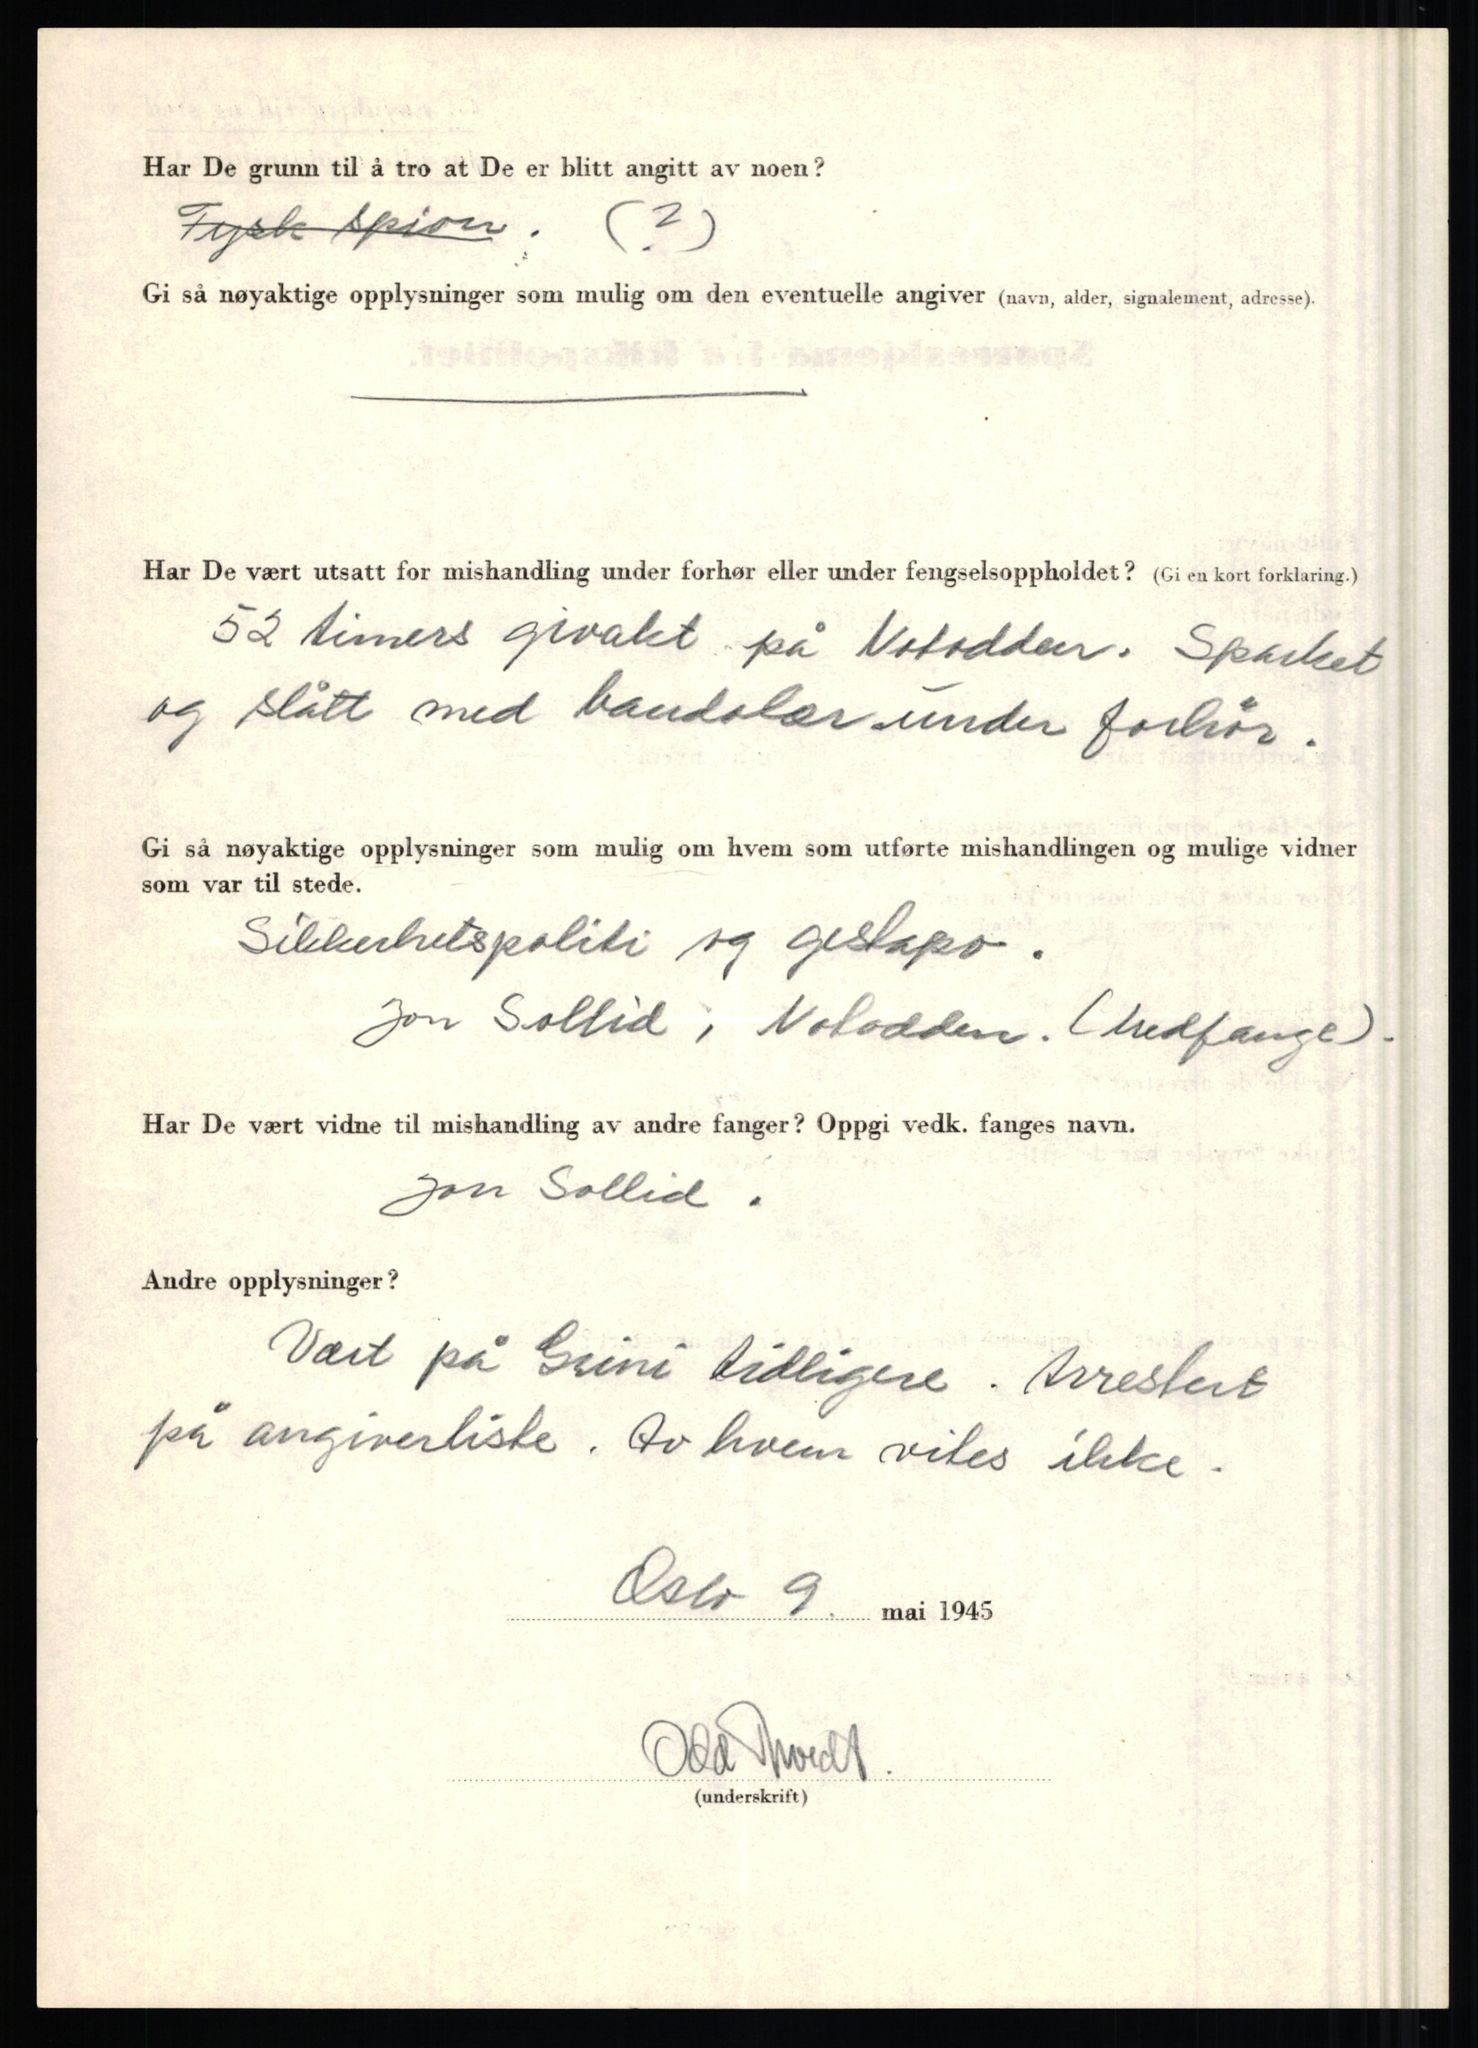 Har De grunn til å tro at De er blitt angitt av noen?
Tysk spion. (?)
Gi så nøyaktige opplysninger som mulig om den eventuelle angiver (navn, alder, signalement, adresse).
Har De vært utsatt for mishandling under forhør eller under fengselsoppholdet? (Gi en kort forklaring.)
52 timers givakt på Notodden. Sparket
og slått med bandolær under forhör.
Gi så nøyaktige opplysninger som mulig om hvem som utførte mishandlingen og mulige vidner
som var til stede.
Sikkerhetspoliti og gestapo.
Jon Sollid, Notodden. (Medfange).
Har De vært vidne til mishandling av andre fanger? Oppgi vedk. fanges navn.
Jon Sollid.
Andre opplysninger?
Vært på Grini tidligere. Arrestert
på angiverliste. Av hvem vites ikke.
Oslo 9. mai 1945
Odd
(underskrift)